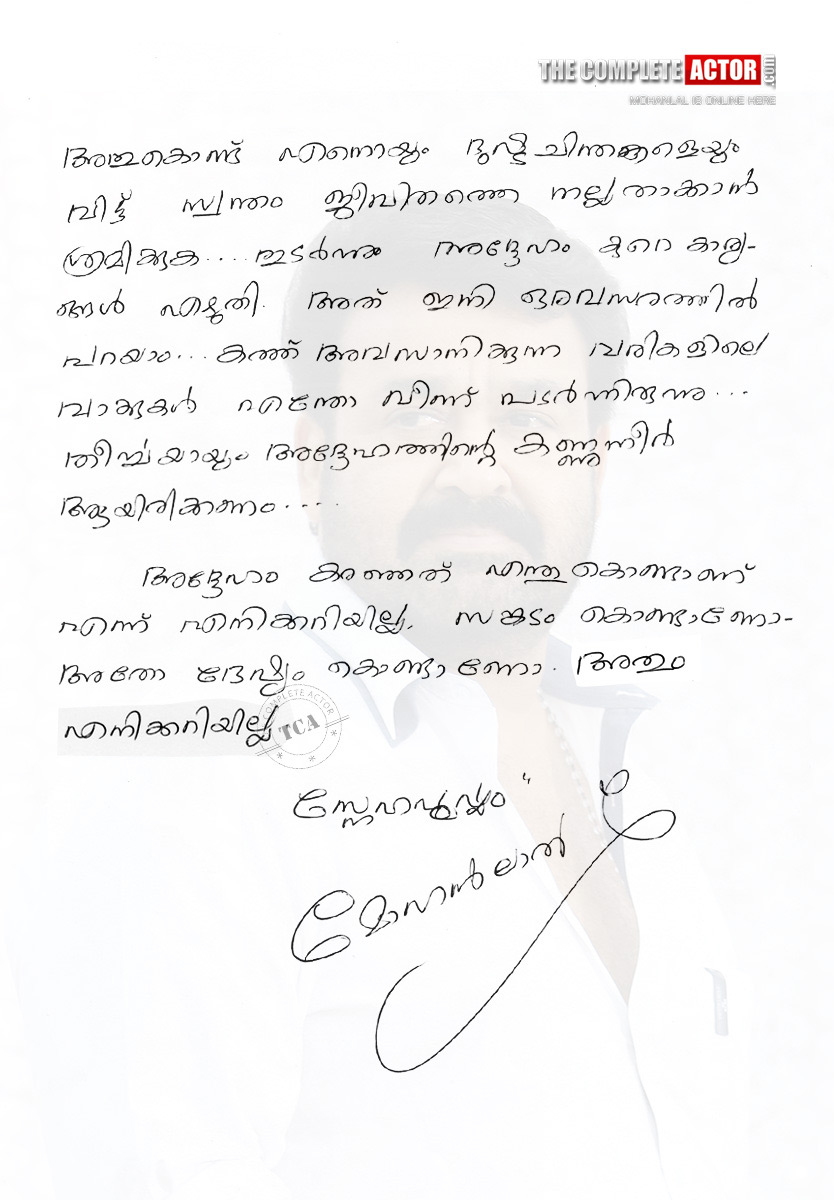 THE COMPLETE ACTOR .com
MOHANLAL IS ONLINE HERE
അതുകൊണ്ട് എന്നെയും ദുഷ്ടചിന്തകളെയും
വിട്ട് സ്വന്തം ജീവിതത്തെ നല്ലതാക്കാൻ
ശ്രമിക്കുക.... തുടർന്നും അദ്ദേഹം കുറെ കാര്യ-
ങ്ങൾ എഴുതി. അത് ഇനി ഒരവസരത്തിൽ
പറയാം... കത്ത് അവസാനിക്കുന്ന വരികളിലെ
വാക്കുകൾ എന്തോ വീണ് പടർന്നിരുന്നു...
തീർച്ചയായും അദ്ദേഹത്തിന്റെ കണ്ണുനീർ
ആയിരിക്കണം.....
അദ്ദേഹം കരഞ്ഞത് എന്തുകൊണ്ടാണ്
എന്ന് എനിക്കറിയില്ല. സങ്കടം കൊണ്ടാണോ-
അതോ ദേഷ്യം കൊണ്ടാണോ. അതും
എനിക്കറിയില്ല
COMPLETE ACTOR
TCA
സ്നേഹപൂർവ്വം"
മോഹൻലാൽ